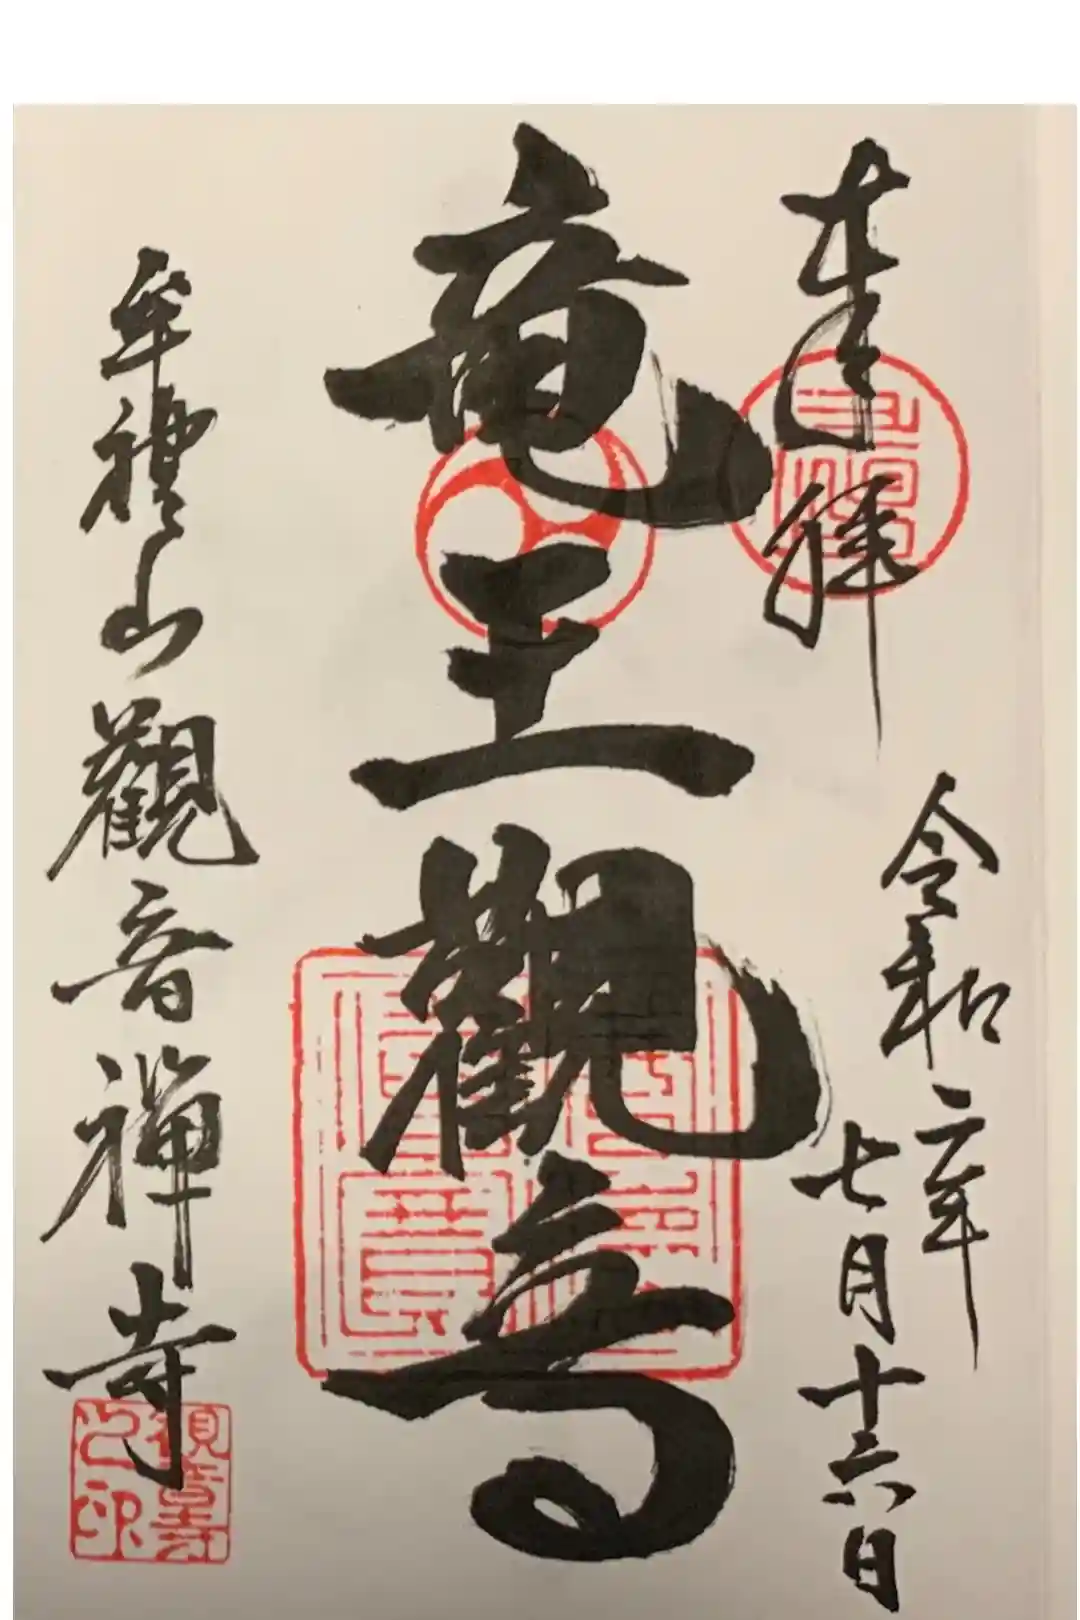 奉拝
令和二年
七月十六日
竜王觀音
牟禮山觀音禅寺